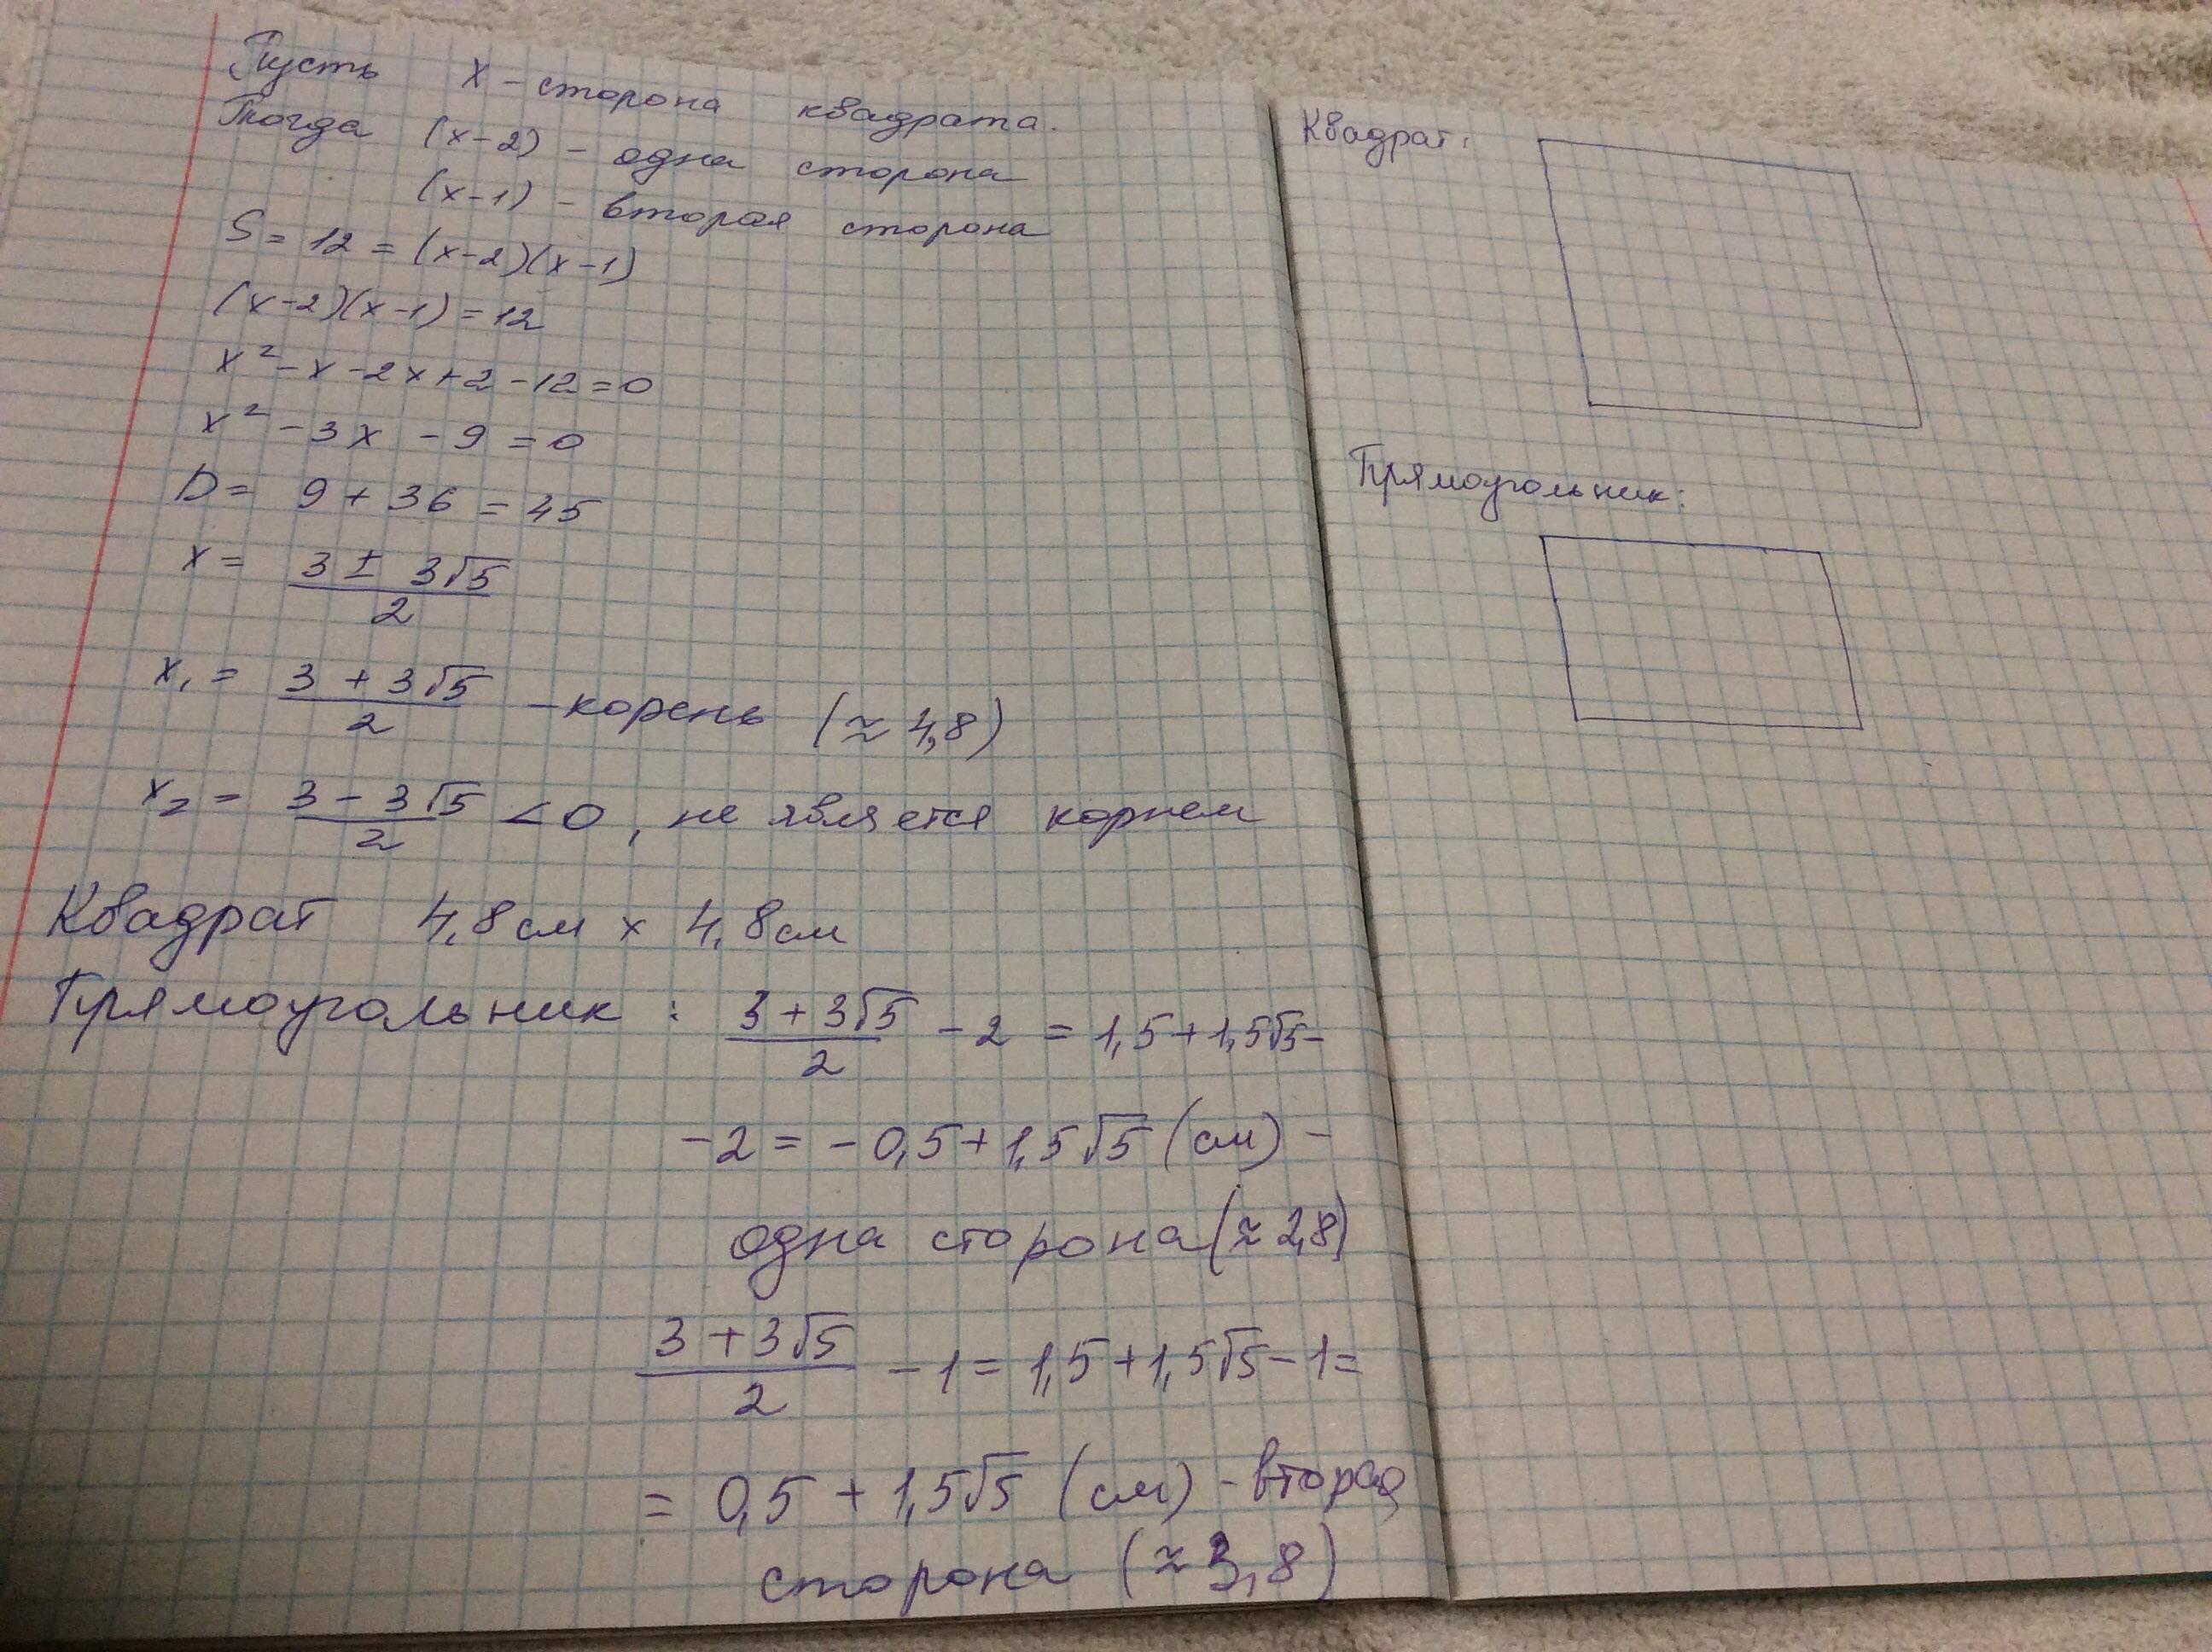 Пусть х - сторона квадрата.
Тогда (х-2) - одна сторона
(х-1) - вторая сторона
S = 12 = (х-2)(х-1)
(х-2)(х-1) = 12
х² - х - 2х + 2 - 12 = 0
х² - 3х - 9 = 0
D = 9 + 36 = 45
х = (3 ± 3√5)/2
х₁ = (3 + 3√5)/2 - корень (≈ 4,8)
х₂ = (3 - 3√5)/2 < 0, не является корнем
Квадрат 4,8 см х 4,8 см
Прямоугольник : (3 + 3√5)/2 - 2 = 1,5 + 1,5√5 -
- 2 = - 0,5 + 1,5√5 (см) -
одна сторона (≈ 2,8)
(3 + 3√5)/2 - 1 = 1,5 + 1,5√5 - 1 =
= 0,5 + 1,5√5 (см) - вторая
сторона (≈ 3,8)
Квадрат:
Прямоугольник: